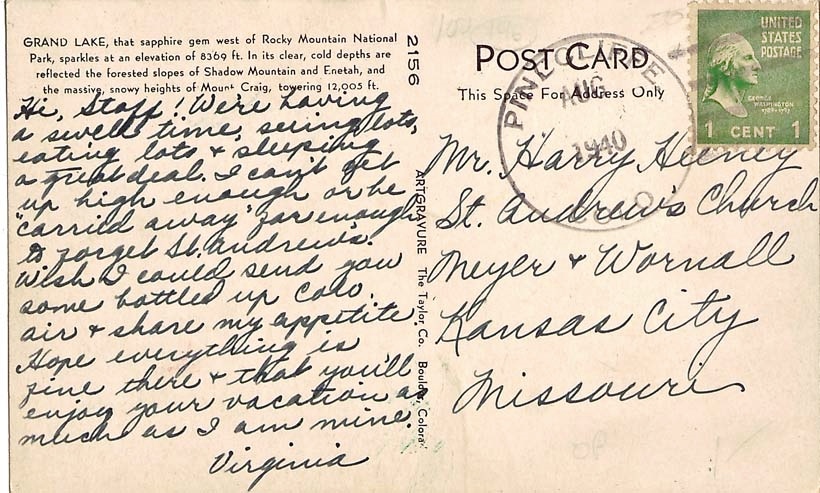 GRAND LAKE, that sapphire gem west of Rocky Mountain National
Park, sparkles at an elevation of 8369 ft. In its clear, cold depths are
reflected the forested slopes of Shadow Mountain and Enetah, and
the massive, snowy heights of Mount Craig, towering 12,005 ft.
Hi, Staff! We're having
a swell time, seeing lots,
eating lots & sleeping
a great deal. I can't get
up high enough or be
"carried away" far enough
to forget St. Andrew's.
Wish I could send you
some bottled up Colo.
air & share my appetite
Hope everything is
fine there & that you'll
enjoy your vacation as
much as I am mine.
Virginia
2156
ARTGRAVURE The Taylor Co. Boulder, Colorado
POST CARD
This Space For Address Only
PINECLIFFE
AUG
1940
COLO.
UNITED
STATES
POSTAGE
GEORGE
WASHINGTON
1789-1797
1 CENT 1
Mr. Harry Heeney
St. Andrew's Church
Meyer & Wornall
Kansas City
Missouri